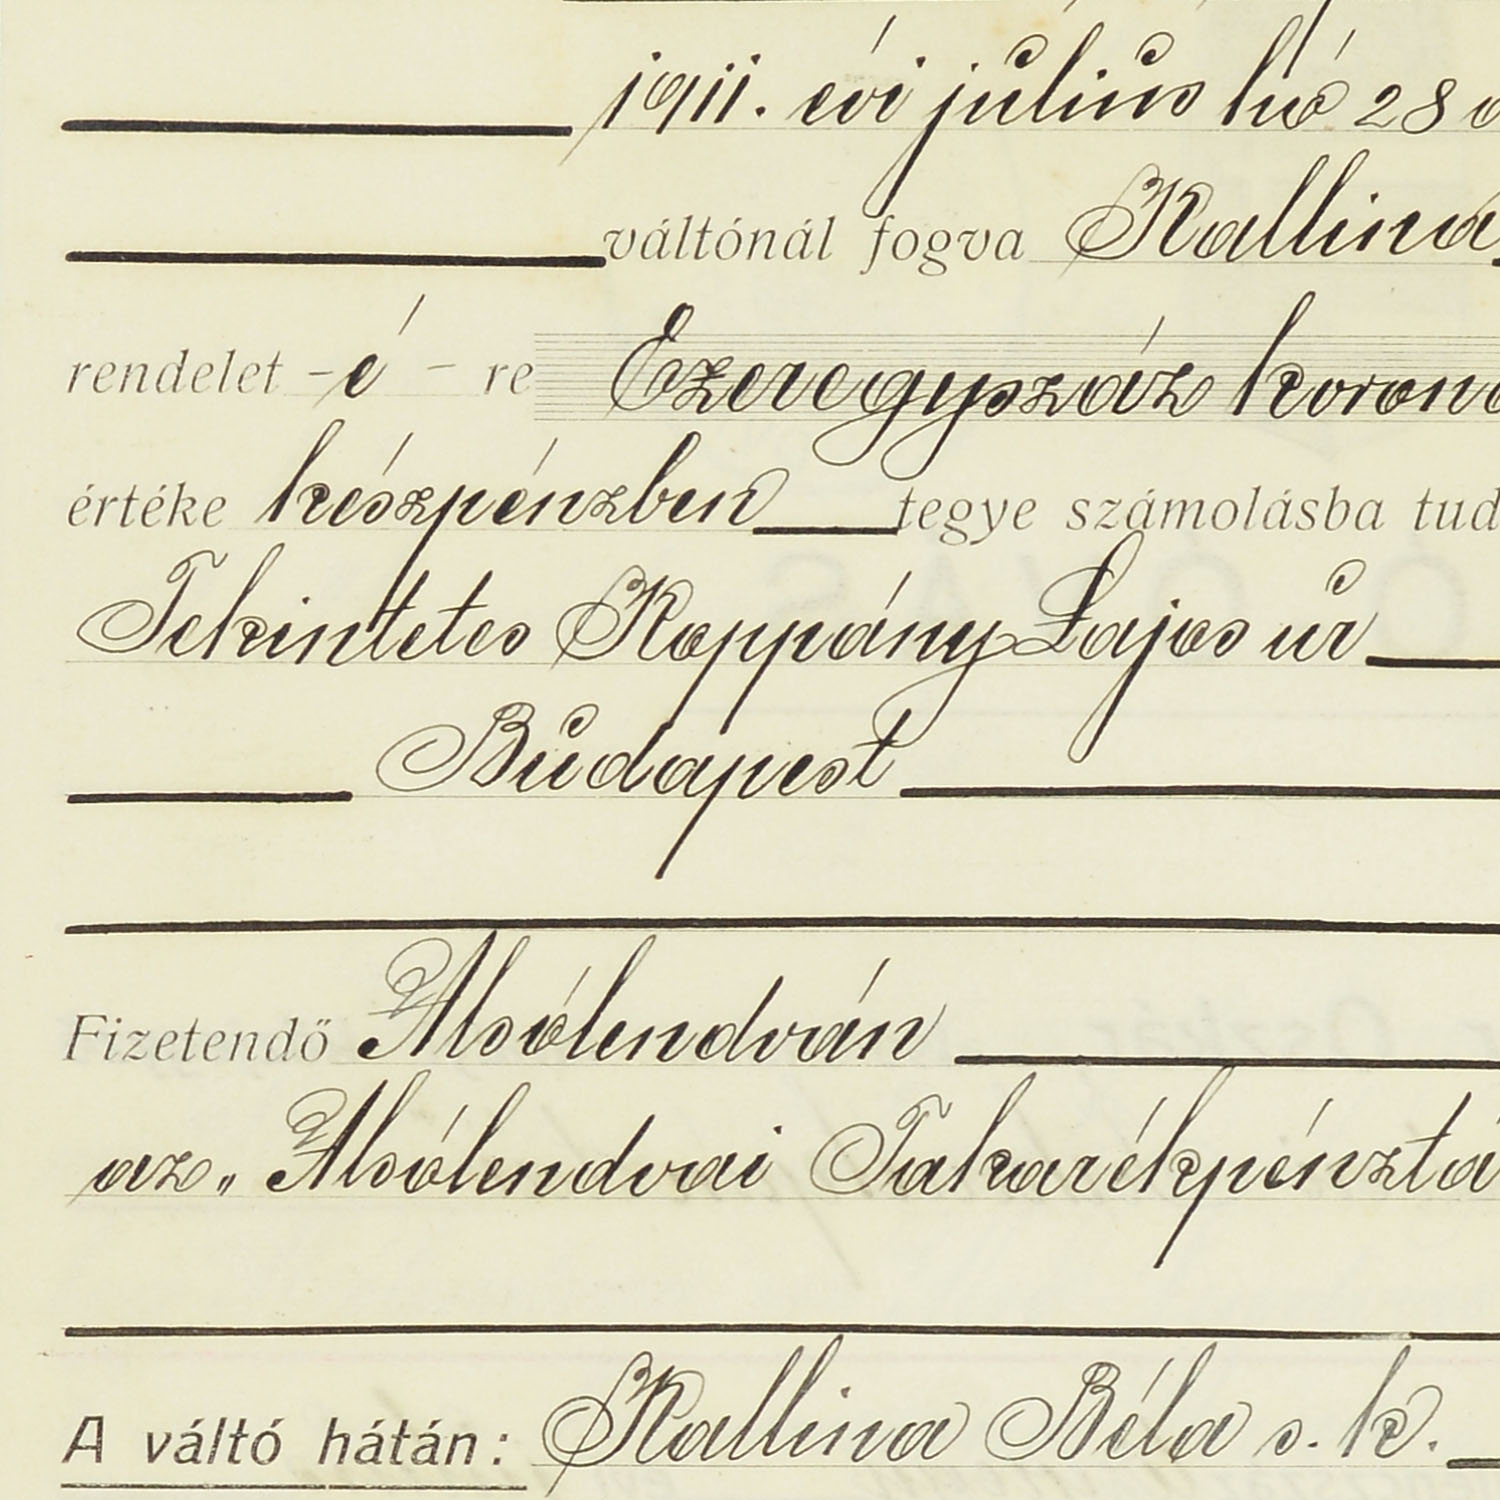 1911. évi július hó 28
váltónál fogva Kallina
rendelet -é- re Ezeregyszáz koron
értéke készpénzben tegye számolásba tud
Tekintetes Koppány Lajos úr
Budapest
Fizetendő Alsólendván
az „Alsólendvai Takarékpénztá
A váltó hátán: Kallina Béla s. k.